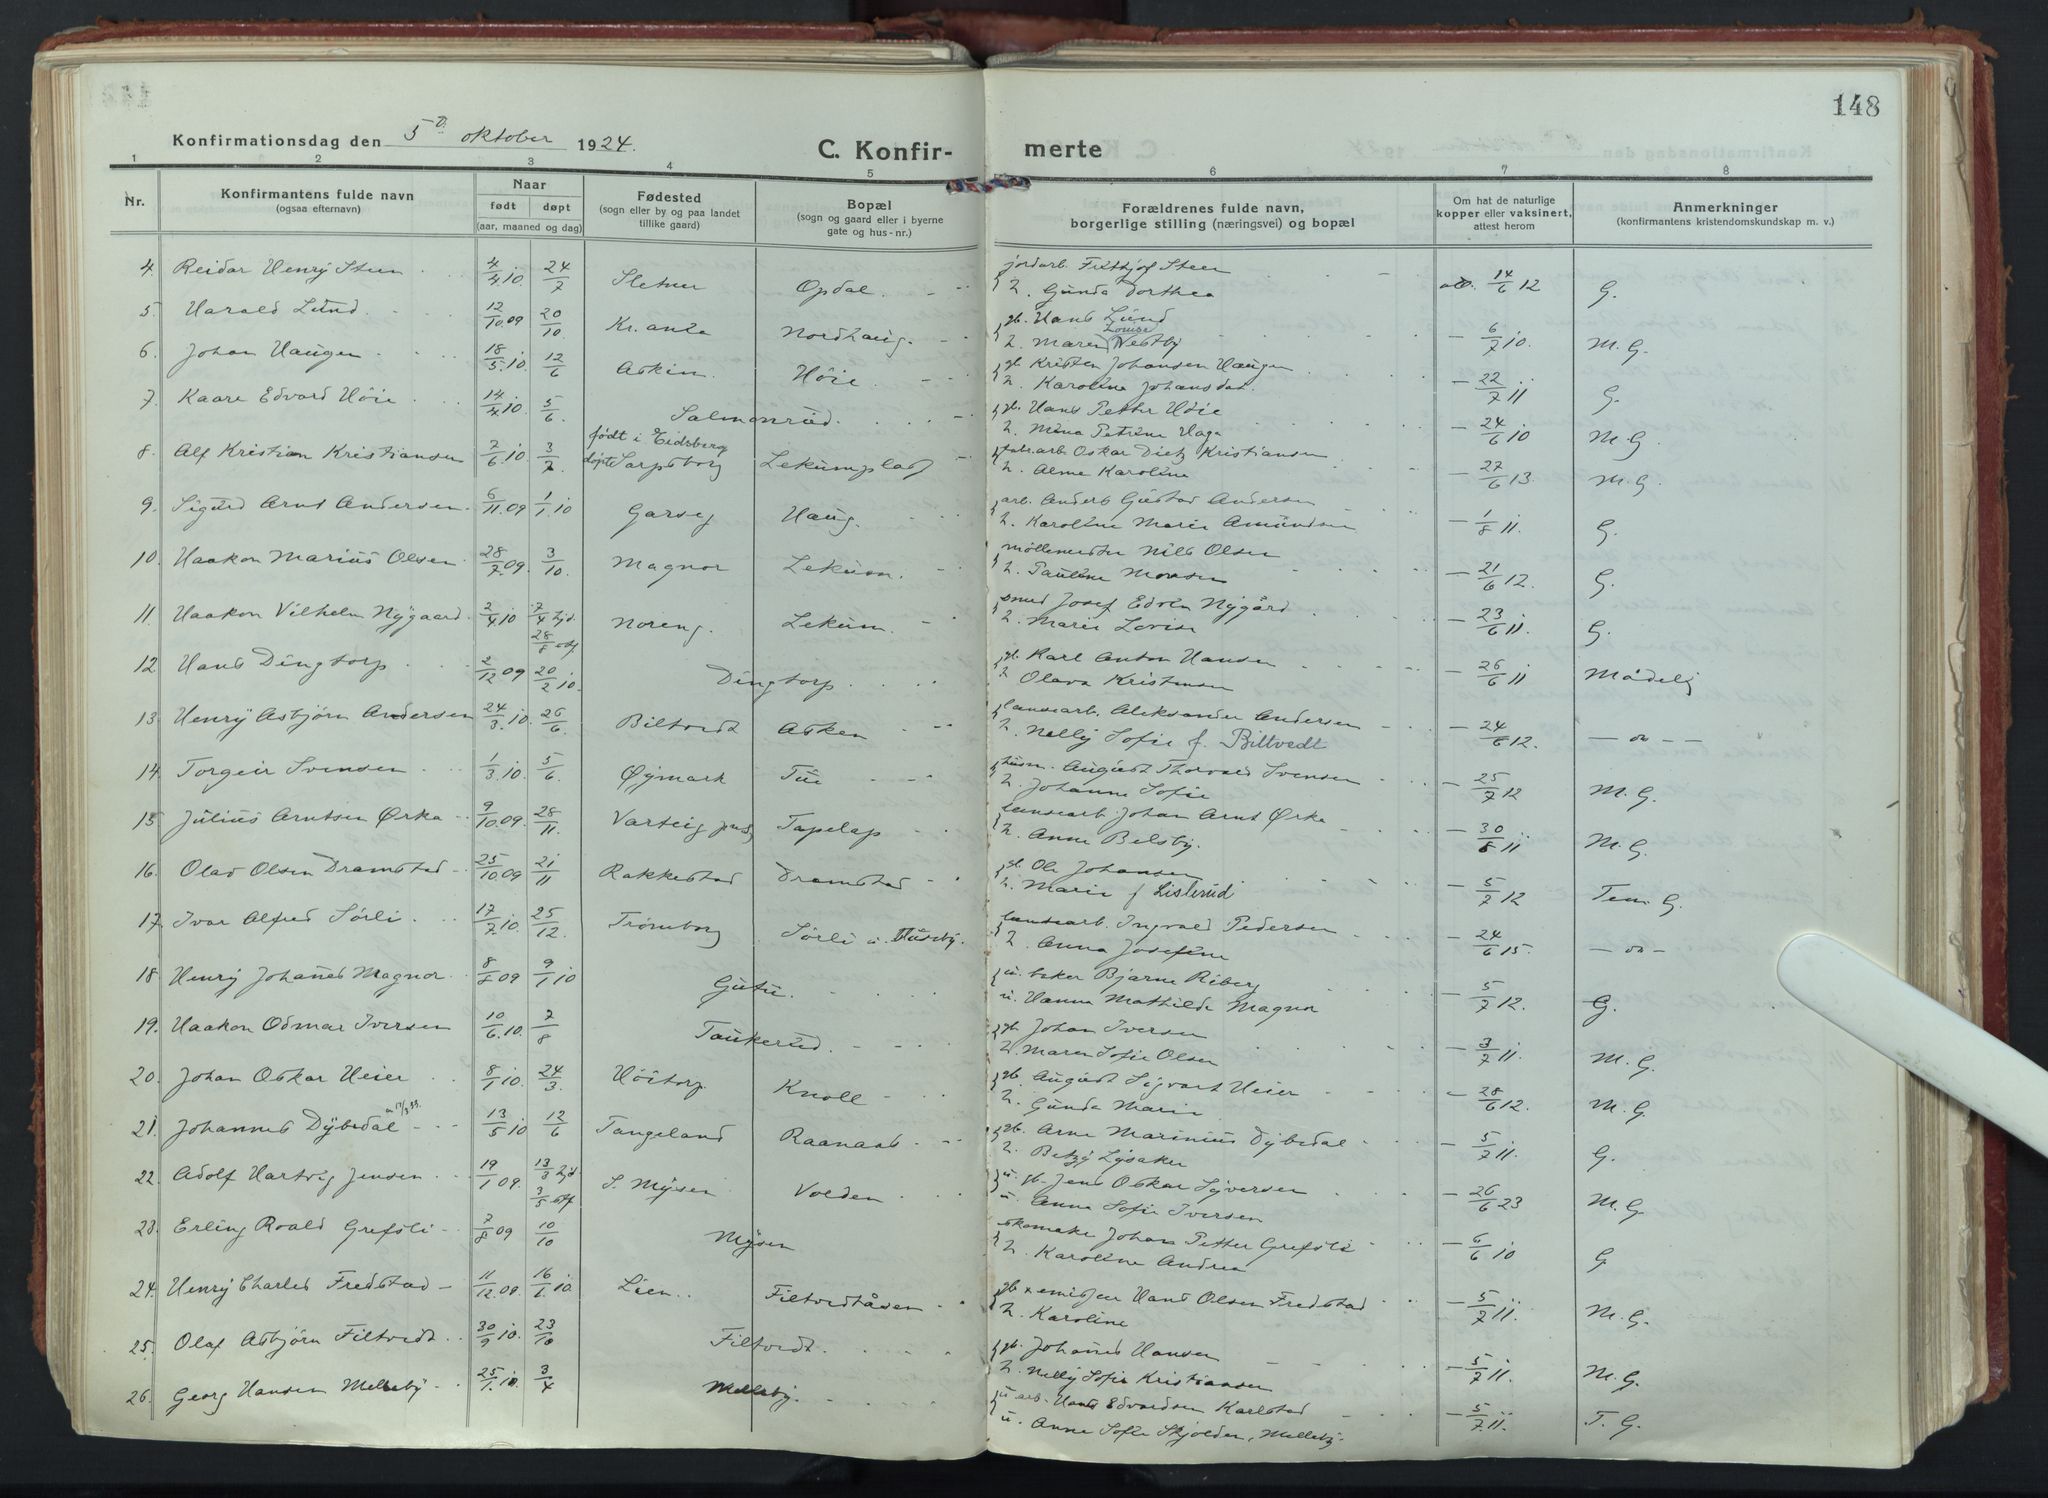 148
Konfirmationsdag den 5te oktober 1924.
C. Konfir- merte
1 2 3 4 5 6 7 8
Nr. Konfirmantens fulde navn (ogsaa efternavn) Naar født døpt (aar, maaned og dag) Fødested (sogn eller by og paa landet tillike gaard) Bopæl (sogn og gaard eller i byerne gate og hus-nr.) Forældrenes fulde navn, borgerlige stilling (næringsvei) og bopæl Om hat de naturlige kopper eller vaksinert, attest herom Anmerkninger (konfirmantens kristendomskundskap m. v.)
4. Reidar Henry Steen 4/4 10 24/7 Sletner Opdal. jordarb. Frithjof Steen h. Gunda Dorthea 14/6 12 G.
5. Harald Lund 12/10 09 20/10 Kr.ania Nordhaug. gb. Hans Lund h. Maren Louise Vestby - 6/7 10. M.G.
6. Johan Haugen 18/5 10. 12/6 Askim. Høie. gb. Kristen Johansen Haugen h. Karoline Johansdat. - 22/7 11 G.
7. Kaare Edvard Høie 14/4 10. 5/6 Salmonrud. gb. Hans Petter Høie h. Mina Petrine Haga - 24/6 10 M.G.
8. Alf Kristian Kristiansen 7/6 10. 3/7 født i Eidsberg døpt Sarpsborg Lekumplads fabr.arb. Oskar Dietz Kristiansen h. Alma Karoline - 27/6 13. M.G.
9. Sigurd Arnt Andersen. 6/11 09 1/1 10 Garseg Haug. arb. Anders Gustad Andersen h. Karoline Marie Amundsen - 1/8 11. G.
10. Haakon Marius Olsen 28/7 09. 3/10. Magnor Lekum. møllemester Nils Olsen h. Pauline Monsen - 21/6 12. G.
11. Haakon Vilhelm Nygaard 2/4 10 7/4 hjd. 28/8 off Noreng. Lekum. smed Josef Edvin Nygård h. Marie Lovise - 23/6 11. G.
12 Hans Dingtorp 2/12 09 20/2 10. Dingtorp gb. Karl Anton Hansen h. Olava Kristensen - 26/6 11 Mådelig
13. Henry Asbjørn Andersen 24/3 10. 26/6 Biltvedt Asken lausearb. Aleksander Andersen h. Nelly Sofie f. Biltvedt - 24/6 12. — do — —
14. Torgeir Svensen 1/3 10. 5/6 Øymark Tui husm. August Thorvald Svensen h. Johanne Sofie - 25/7 12 M.G.
15. Julius Arntsen Ørka 9/10 09. 28/11. Varteig Tapelap lausearb. Johan Arnt Ørka h. Anne Belsby. - 30/8 11 M.G.
16. Olav Olsen Dramstad 25/10 09 21/11 Rakkestad Dramstad gb. Ole Johansen h. Marie f Listerud - 5/7 12 Tem. G.
17. Ivar Alfred Sørli 17/7 10. 25/12. Trømborg Sørli u. Huseby. lausearb. Ingvald Pedersen h. Anna Josefine - 24/6 15. — do —
18. Henry Johanes Magnor 8/8 09 9/1 10 Gutu. u. baker Bjarne Riberg u. Hanna Mathilde Magnor - 5/7 12. G.
19. Haakon Odmar Iversen 10/6 10. 7/8 Taukerud. gb. Johan Iversen h. Maren Sofie Olsen - 3/7 11. M.G.
20. Johan Oskar Heier 8/1 10. 24/3. Høitorp Knoll gb. August Sigvart Heier h. Gunda Marie - 28/6 12. M.G.
21. Johannes Dybedal 13/5 10 12/6 Tangeland Raanaas gb. Arne Marinius Dybedal h. Betzy Lysaker - 5/7 11. G.
22. Adolf Hartvig Jensen 19/1 09. 13/3 hjd 3/5 off S. Mysen Volden u. gb. Jens Oskar Syversen u. Anna Sofie Iversen - 26/6 23 M.G.
23. Erling Roald Grefsli 7/8 09 10/10 Mysen skomaker Johan Petter Grefsli h. Karoline Andrea - 6/6 10 G
24. Henry Charles Fredstad 11/12 09. 16/1 10. Lien. Filtvedtåsen gb. x emissær Hans Olsen Fredstad h. Karoline - 5/7 11. M.G.
25. Olaf Asbjørn Filtvedt 30/9 10. 23/10 Filtvedt. gb. Johanes Hansen h. Nelly Sofie Kristiansen - 5/7 11. M.G.
26. Georg Hansen Melleby 25/1 10. 3/4 Melleby. u. arb. Hans Edvardsen Karlstad u. Anne Sofie Skjolden, Melleby - 5/7 11. T. G.